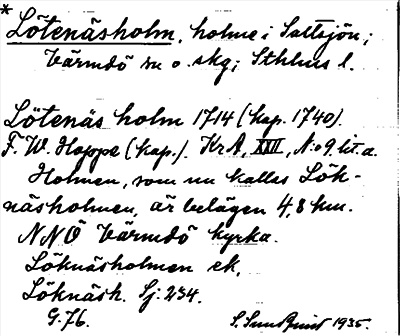 * Lötenäsholm, holme i Saltsjön;
Värmdö sn o. skg; Sthlms l.
Lötenäs holm 1714 (kop. 1740).
F. W. Hoppe (kop.). KrA, XXII, N:o 9 lit. a.
Holmen, som nu kallas Lök-
näsholmen, är belägen 4,8 km.
NNÖ Värmdö kyrka.
Löknäsholmen ek,
Löknäsh. Sj: 234.
G.76.
S. Sundqvist 1935.